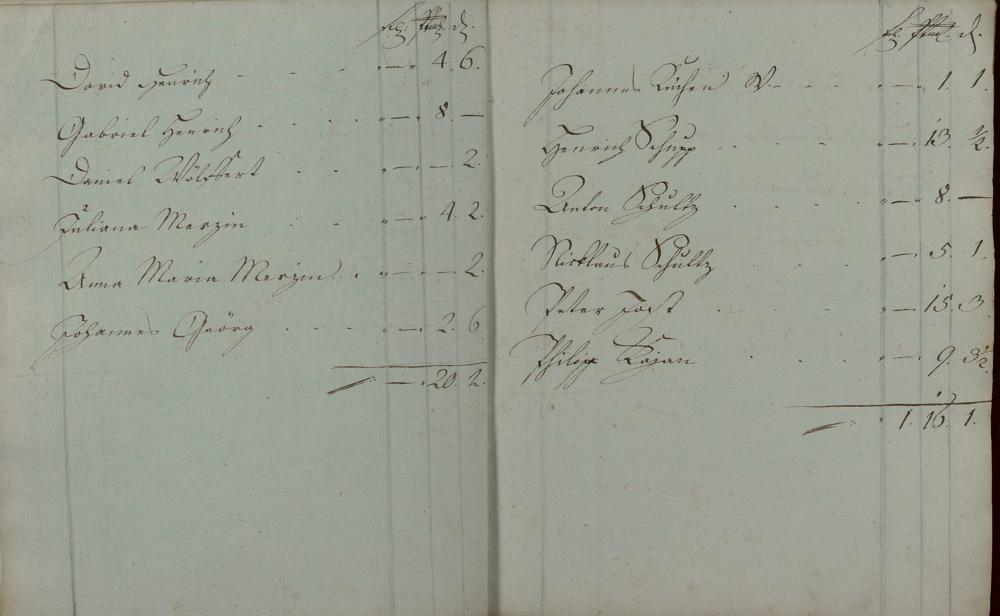 fl: Stbr. d.
David Henrich — 4. 6.
Gabriel Henrich — 8. —
Daniel Wölffert — — 2.
Juliana Merzin — 4. 2.
Anna Maria Merzin — — 2.
Johannes Georg — 2. 6
— 20. 2.
fl. d.
Johannes Küchen — 1. 1.
Henrich Schupp — 13. ½.
Anton Schultz — 8. —
Nicklaus Schultz — 5. 1.
Peter Jost — 15. 3.
Philipp Kajan — 9. 3½.
1. 16. 1.